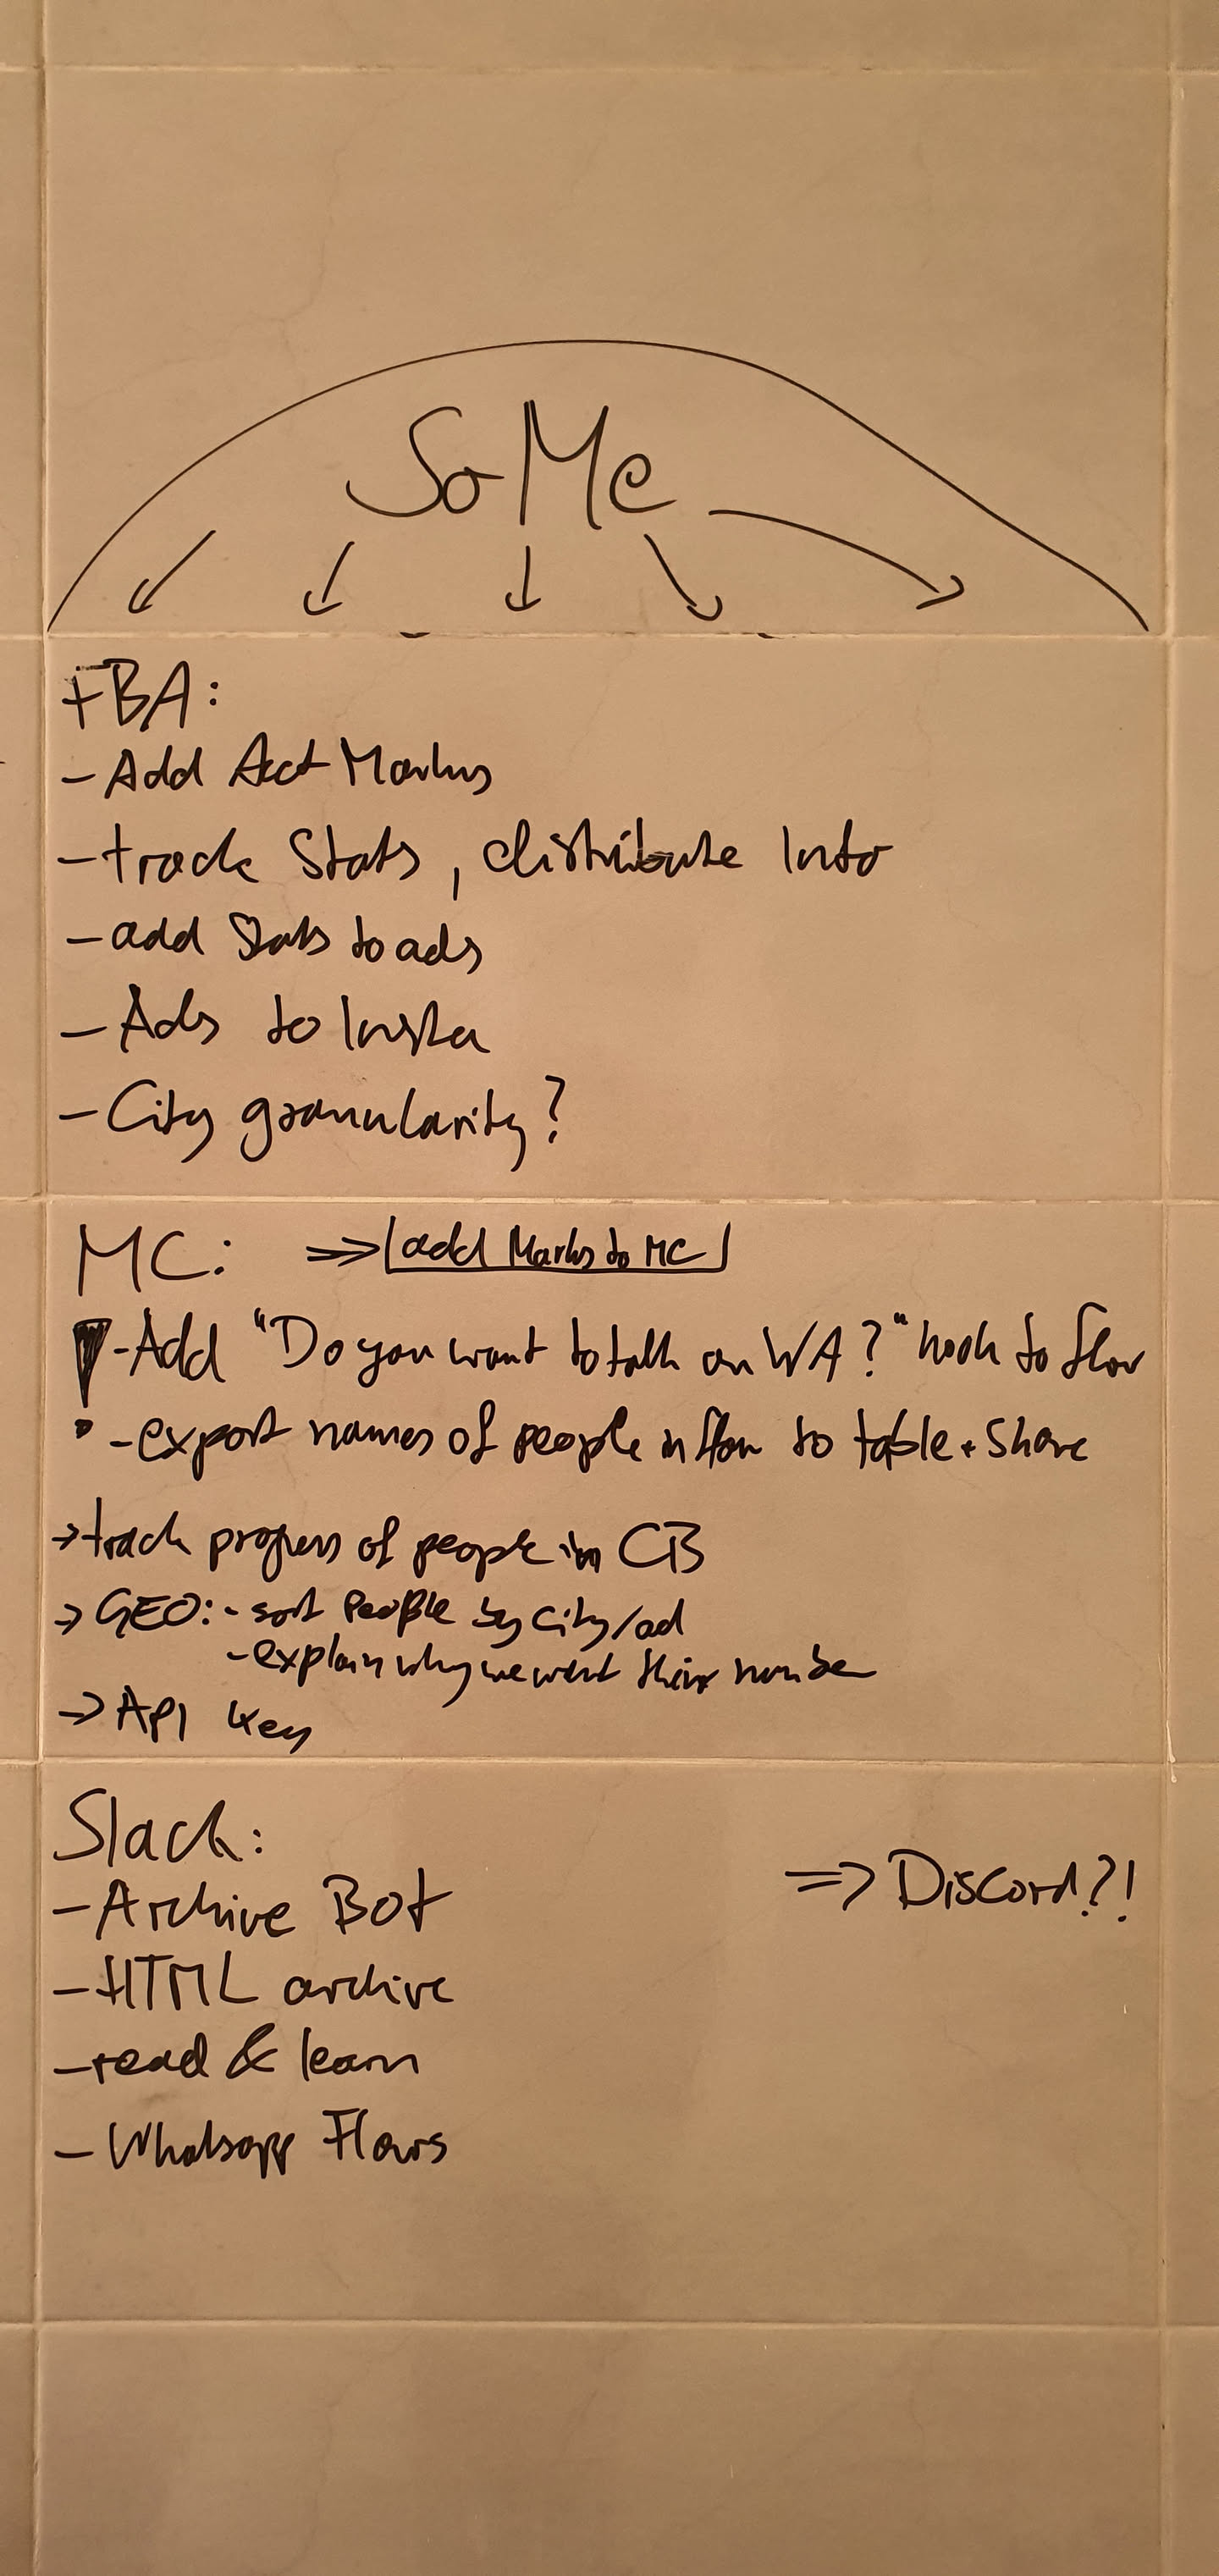 SoMe
FBA:
- Add Acct Markus
- track Stats, distribute Info
- add Stats to ads
- Ads to Insta
- City granularity?
MC: => add Markus to MC
! - Add "Do you want to talk on WA?" hook to flow
- export names of people in flow to table + share
-> track progress of people in CB
-> GEO: - sort People by city/ad
- explain why we want their number
-> API Key
Slack:
=> Discord?!
- Archive Bot
- HTML archive
- read & learn
- Whatsapp Flows